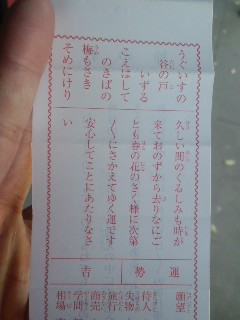 うぐいすの
谷の戸
いずる
こえはして
のきばの
梅もさき
そめにけり
久しい間のくるしみも時が
来ておのずから去りなにご
とも春の花のさく様に次第
〳〵にさかえてゆく運です
安心してことにあたりなさ
い
運勢 吉
願望
待人
失物
旅行
商売
学問
相場